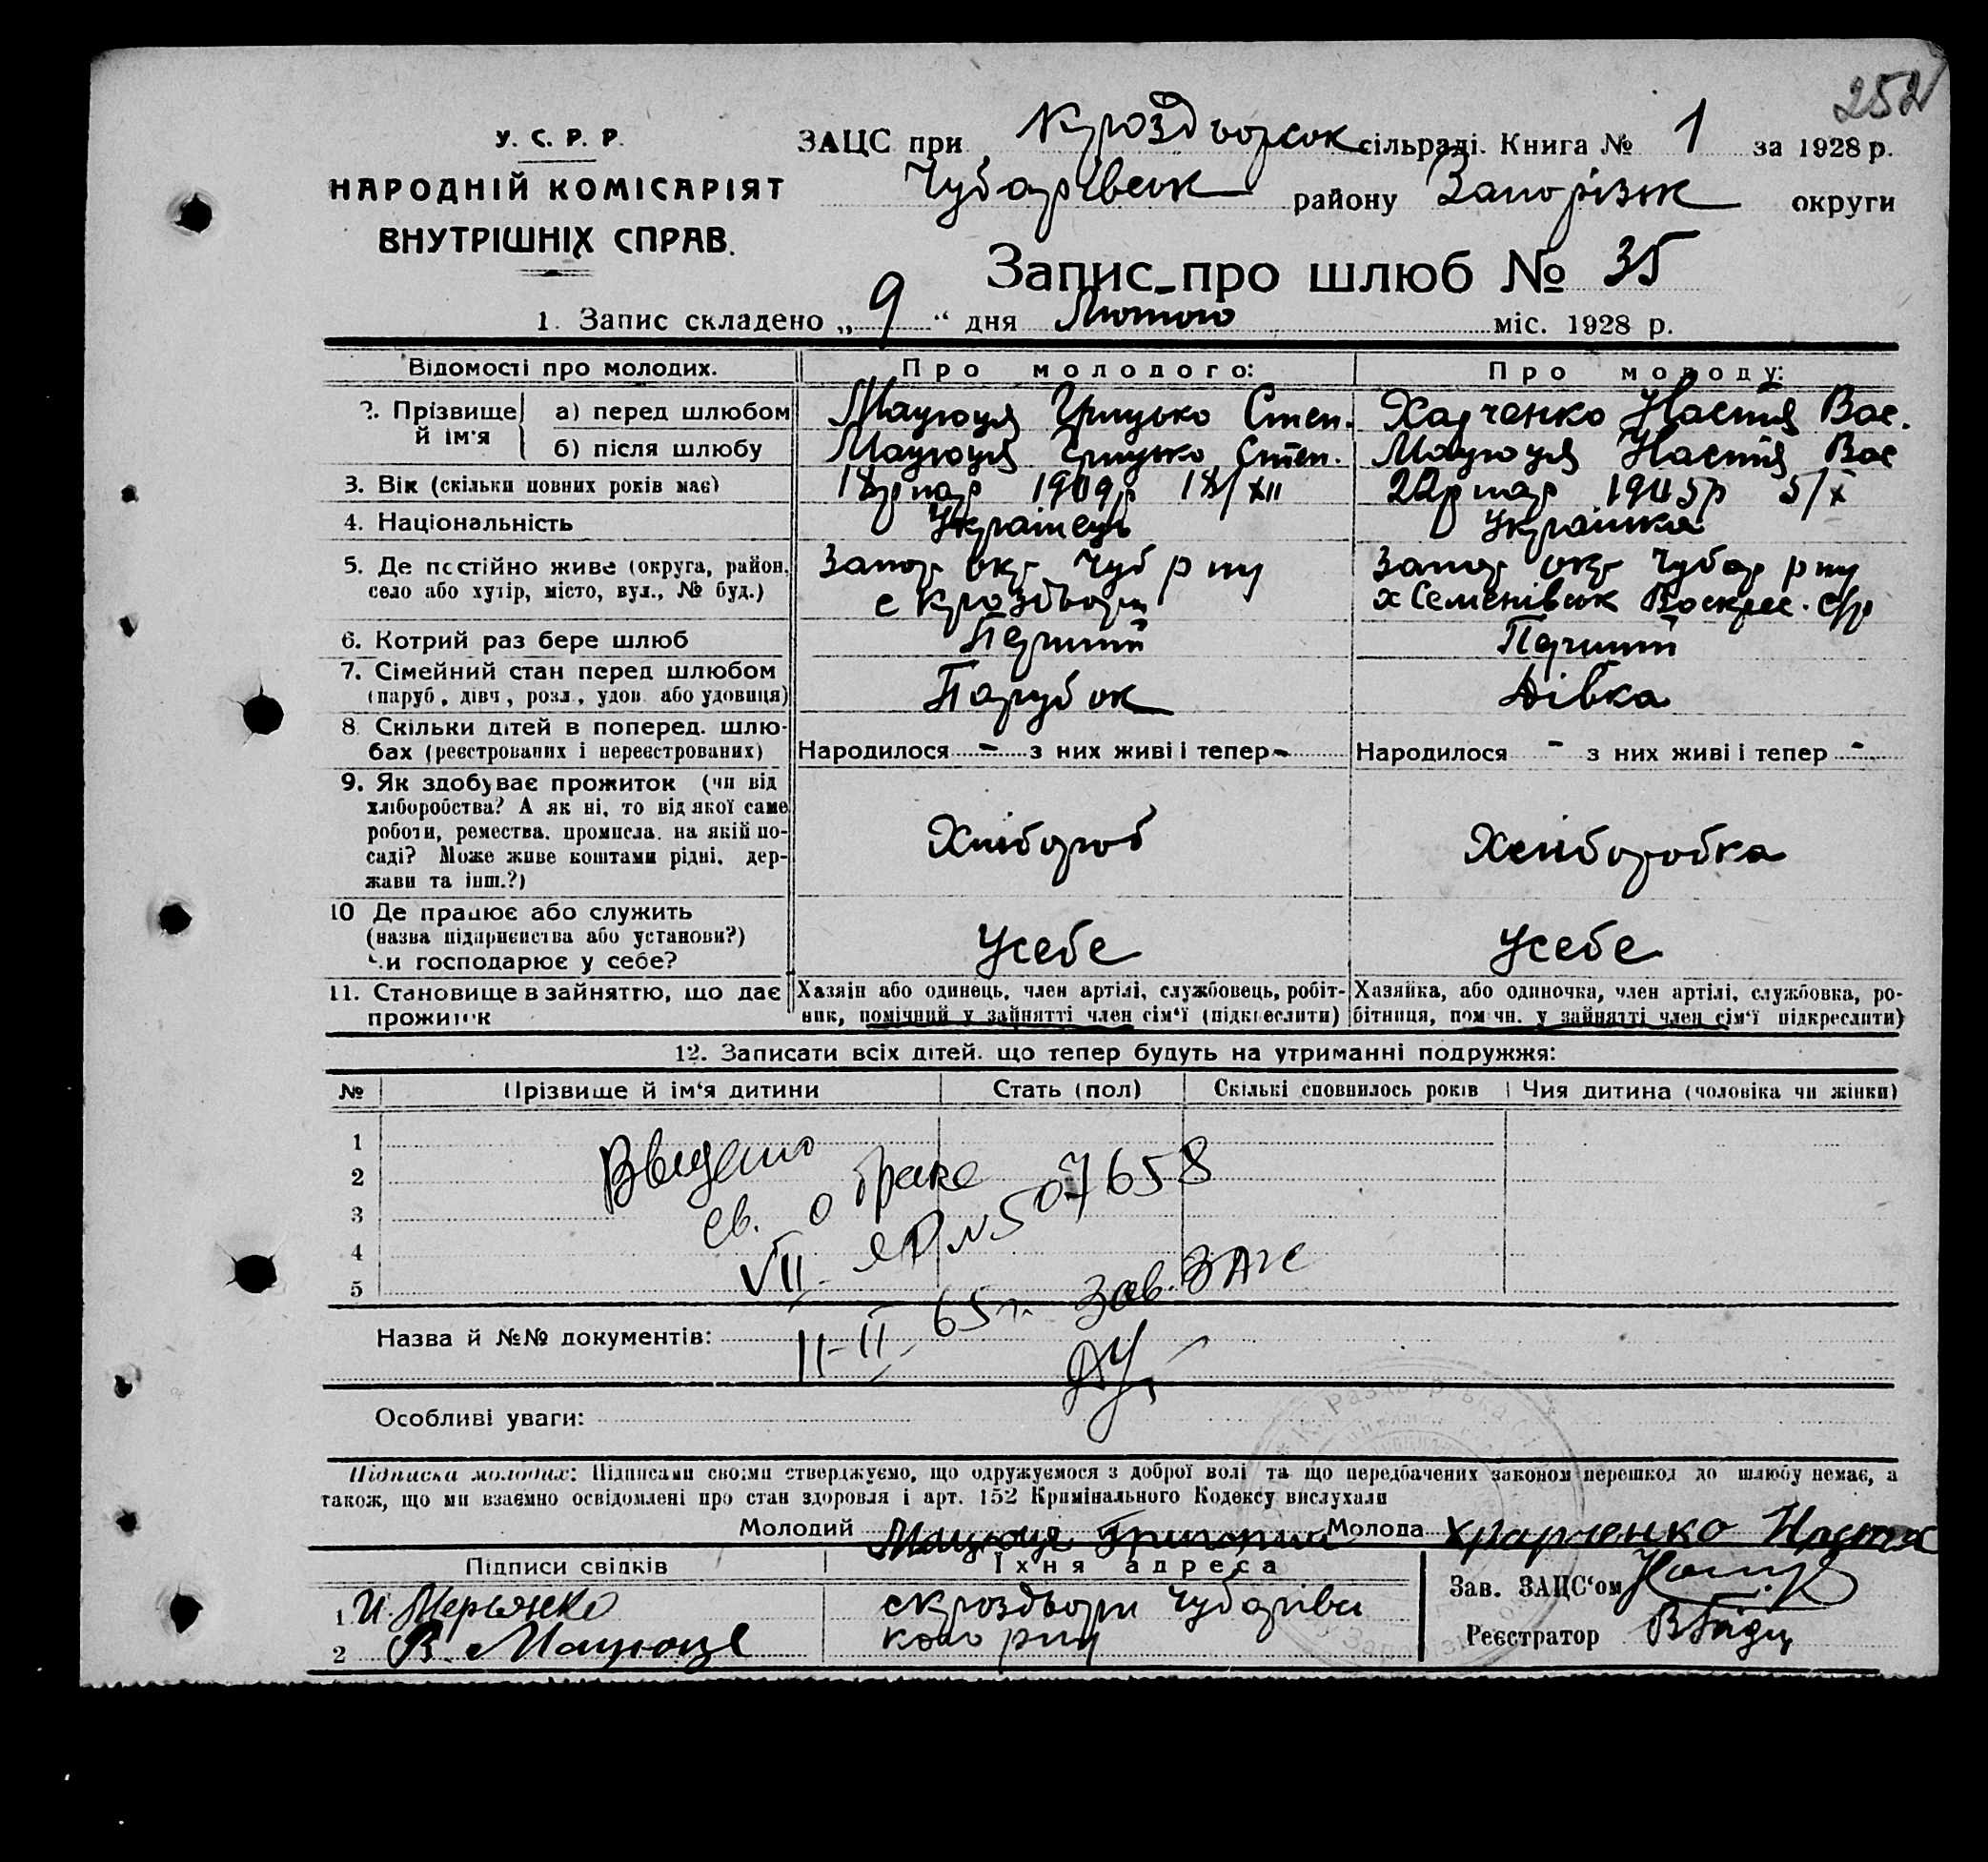 252
У. С. Р. Р.
НАРОДНІЙ КОМІСАРІЯТ
ВНУТРІШНІХ СПРАВ.
ЗАЦС при Кроздворок сільраді. Книга № 1 за 1928 р.
Чубарівськ району Запорізьк округи
Запис про шлюб № 35
1. Запис складено „ 9 “ дня Лютого міс. 1928 р.
Відомості про молодих. Про молодого: Про молоду:
2. Прізвище й ім'я а) перед шлюбом Мацюця Грицько Степ. Харченко Настя Вас.
б) після шлюбу Мацюця Грицько Степ. Мацюця Настя Вас
3. Вік (скільки повних років має) 18р нар 1909р 18/XII 22р нар 1905р 5/X
4. Національність Українець Українка
5. Де постійно живе (округа, район, Запор окр Чуб рну Запор окр Чубар рну
село або хутір, місто, вул., № буд.) с Кроздвори х Семенівськ Воскрес. с/р
6. Котрий раз бере шлюб Перший Перший
7. Сімейний стан перед шлюбом
(паруб, дівч, розл, удов. або удовиця) Парубок Дівка
8. Скільки дітей в поперед. шлю-
бах (реєстрованих і нереєстрованих) Народилося - з них живі і тепер - Народилося - з них живі і тепер -
9. Як здобуває прожиток (чи від
хліборобства? А як ні, то від якої саме
роботи, ремества, промисла, на якій по-
саді? Може живе коштами рідні, дер-
жави та інш.?) Хлібороб Хліборобка
10 Де працює або служить
(назва підприємства або установи?)
Чи господарює у себе? Усебе Усебе
11. Становище в зайняттю, що дає прожиток
Хазяін або одинець, член артілі, службовець, робіт-
ник, помічний у зайнятті член сім'ї (підкреслити)
Хазяйка, або одиночка, член артілі, службовка, ро-
бітниця, помічн. у зайнятті член сім'ї підкреслити)
12. Записати всіх дітей, що тепер будуть на утриманні подружжя:
№ Прізвище й ім'я дитини Стать (пол) Скількі сповнилось років Чия дитина (чоловіка чи жінки)
1
2
3
4
5
св. о браке
VII- ЯР № 507658
11-II 65г. Зав. ЗАГС
Назва й №№ документів:
Особливі уваги:
Підписка молодих: Підписами своїми стверджуємо, що одружуємося з доброї волі та що передбачених законом перешкод до шлюбу немає, а
також, що ми взаємно освідомлені про стан здоровля і арт. 152 Кримінального Кодексу вислухали
Молодий Мацюця Григорий Молода Храрченко Настя
Підписи свідків Їхня адреса
1. с Кроздвори Чубарівсь
2 В. Мацюця кого рну
Зав. ЗАЦС'ом
Реєстратор